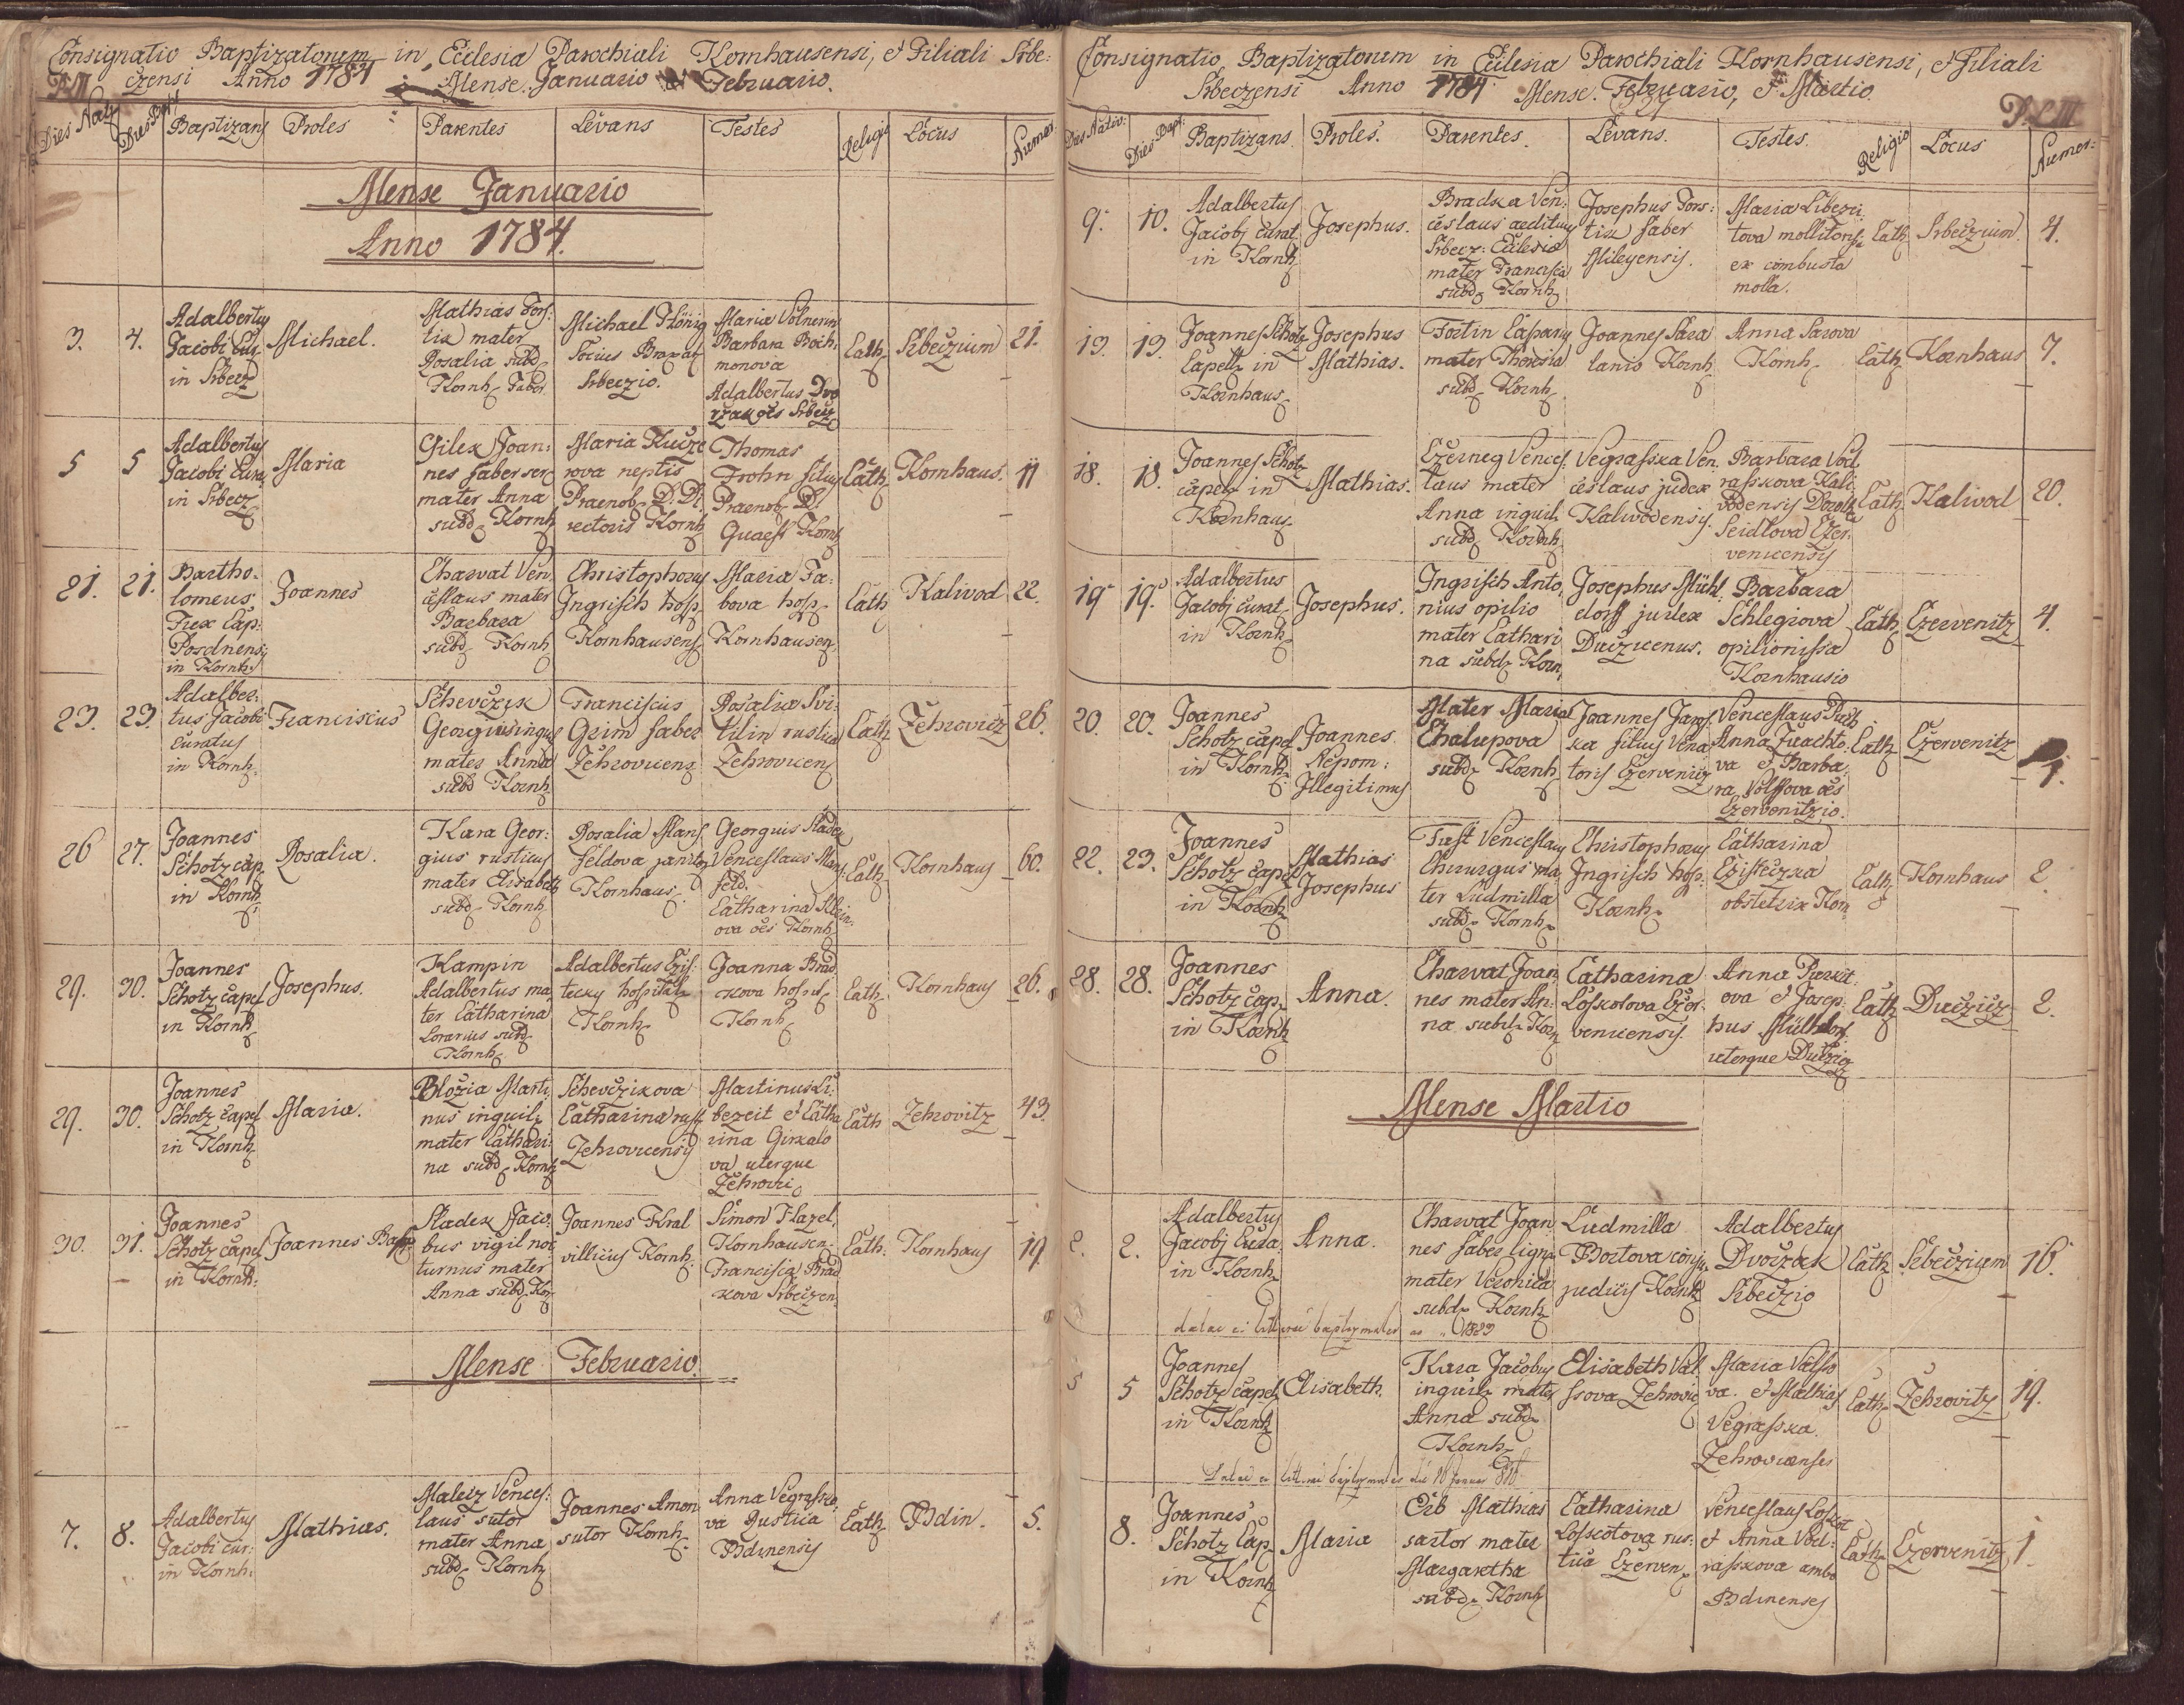 Consignatio Baptizatorum in Ecclesia Parochiali Kornhausensi, et Filiali Srbe:
czensi Anno 1784 Mense Januario et Februario.
Dies Nat. Dies Bapt. Baptizans Proles Parentes Levans Testes Religio Locus Numer:
Mense Januario
Anno 1784.
3. 4. Adalbertus Jacobi Cur. in Srbecz Michael. Mathias Fors: tik mater Rosalia subd. Kornh. Faber Michael König Socius Braxat. Srbeczio. Maria Volnerin Barbara Boch: monova Adalbertus Dvo rzak oes Srbecz Cath. Srbeczium 21.
5 5 Adalbertus Jacobi Cura. in Srbecz Maria Gilek Joan: nes faber ser. mater Anna subd. Kornh. Maria Kucze rova neptis Praenob. D. Di. rectoris Kornh. Thomas Frohn filius Praenob. D. Quaest. Kornh. Cath. Kornhaus. 11
21. 21. Bartho. lomeus Frex Cap: Posdnensis in Kornh. Joannes Charvat Ven. ceslaus mater Barbara subd. Kornh. Christophorus Ingrisch hosp. Kornhausens. Maria Fa: bova hosp. Kornhausen. Cath Kalivod 22.
23. 23. Adalber: tus Jacobi curatus in Kornh. Franciscus Schevczik Georgius inquil. mater Anna subd Kornh. Franciscus Grim faber Zehrovicens. Rosalia Svi: tilin rustica Zehrovicens. Cath. Zehrovicz 26.
26 27. Joannes Schotz cap. in Kornh. Rosalia. Kara Geor: gius rusticus mater Elisabeth subd. Kornh. Rosalia Mans feldova janitor. Kornhaus. Georgius Kladek Venceslaus Mans: feld. Catharina Klein: ova oes Kornh. Cath. Kornhaus 60.
29. 30. Joannes Schotz capel. in Kornh. Josephus. Kampin Adalbertus ma: ter Catharina Lorarius subd. Kornh. Adalbertus Czis: tecky hospital. Kornh. Joanna Brad ckova hospit. Kornh. Cath. Kornhaus 26.
29. 30. Joannes Schotz capel. in Kornh. Maria. Blozia Marti: nus inquil. mater Cathari: na subd. Kornh. Schevczikova Catharina rust. Zehrovicensis Martinus Li: bezeit et Catha rina Girkalo va uterque Zehrovi. Cath Zehrovitz 43.
30. 31. Joannes Schotz capel. in Kornh. Joannes Bapt. Kladek Jaco: bus vigil noc: turnus mater Anna subd. Kor. Joannes Kral villicus Kornh. Simon Hazel, Kornhausen. Francisca Brad kova Srbeczen. Cath. Kornhaus 19.
Mense Februario.
7. 8. Adalbertus Jacobi cur: in Kornh: Mathias. Malecz Vences: laus sutor mater Anna subd. Kornh. Joannes Amon sutor Kornh. Anna Vegrassko: va Rustica Bdinensis Cath. Bdin. 5.
Consignatio Baptizatorum in Ecclesia Parochiali Kornhausensi, et Filiali
Srbeczensi Anno 1784 Mense. Februario, et Martio.
Dies Nativ: Dies Bapt: Baptizans. Proles. Parentes. Levans. Testes. Religio Locus Numer:
9. 10. Adalbertus Jacobj curat. in Kornh. Josephus. Bradka Ven: ceslaus aedituus Srbecz: Ecclesiae mater Francisca subd. Kornh. Josephus Fors: tik faber Mileyensis. Maria Libezei: tova mollitorissa ex combusta molla. Cath. Srbeczium. 4.
13. 13. Joannes Schotz Capell. in Kornhaus. Josephus Mathias. Fortin Casparus mater Theresia subd. Kornh. Joannes Sara lanio Kornh. Anna Sarova Kornh. Cath. Kornhaus 7.
18. 18. Joannes Schotz capel. in Kornhaus. Mathias. Czerneg Vences: laus mater Anna inquil. subd. Kornh. Vegrasska Ven: ceslaus judex Kalivodensis. Barbara Vod rasskova Kali: vodensis Doroth. Seidlova Czer: venicensis Cath. Kalivod 20.
19. 19. Adalbertus Jacobj curat. in Kornh. Josephus. Ingrisch Anto: nius opilio mater Cathari na subd. Korn. Josephus Mühl: dorff judex Duczicenus. Barbara Schlegrova opilionissa Kornhausio Cath. Czervenitz 4.
20. 20. Joannes Schotz capel. in Kornh. Joannes Nepom: Illegitimus Mater Maria Chalupova subd. Kornh. Joannes Jaros: ka filius Vena toris Czervenicz. Venceslaus Puch Anna Zuachto: va et Barba: ra Volffova oes Czervenitzio. Cath. Czervenitz 1.
22. 23. Joannes Schotz capel. in Kornh. Mathias Josephus Fust Venceslaus Chirurgus ma ter Ludmilla subd. Kornh. Christophorus Ingrisch hosp. Kornh. Catharina Czisteczka obstetrix Korn. Cath. Kornhaus 2.
28. 28. Joannes Schotz cap. in Kornh. Anna. Charvat Joan nes mater An: na subd. Kor. Catharina Loskotova Czer: venicensis. Anna Purkit: ova et Josep: hus Mülldorf uterque Duczicz Cath. Duczicz 2.
Mense Martio
2. 2. Adalbertus Jacobj Cura. in Kornh. Anna. Charvat Joan nes faber lign. mater Veronica subd. Kornh. Ludmilla Bortova conju. judicis Kornh. Adalbertus Dvorzack Srbeczio Cath. Srbeczium 16.
datae litterae baptismales 1823
5 5 Joannes Schotz capel. in Kornh. Elisabeth. Kara Jacobus inquil. mater Anna subd. Kornh. Elisabeth Val: ssova Zehrovic. Maria Valsso va. et Mathias Vegrasska. Zehrovicenses Cath. Zehrovitz 19.
Datae litterae baptismales die 20 Januar
8. Joannes Schotz Cap. in Kornh. Maria Orb Mathias sartor mater Margaretha subd. Kornh. Catharina Loscotova rus: tica Czerven. Venceslaus Loskot et Anna Vod: rasskova ambo Bdinenses Cath. Czervenitz 1.